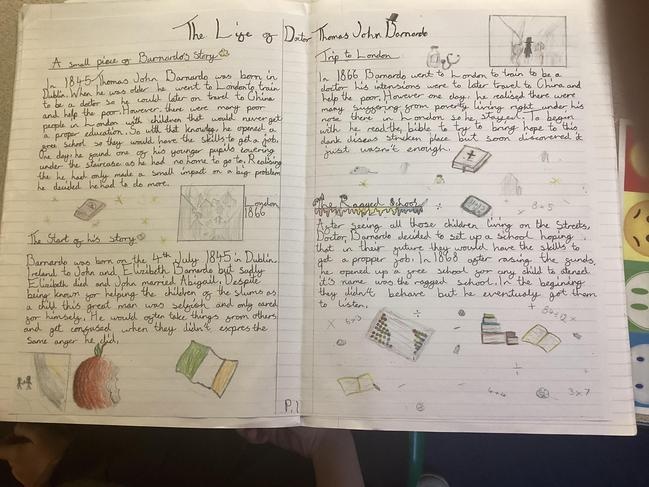 The Life of Doctor Thomas John Barnardo
A small piece of Barnardo's Story
In 1845 Thomas John Barnardo was born in
Dublin. When he was older he went to London to train
to be a doctor so he could later on travel to China
and help the poor. However there were many poor
people in London with children that would never get
a proper education. So with that knowleg, he opened a
free school so they would have the skills to get a job.
One day, he found one of his younger pupils cowering
under the staircase as he had no home to go to. Realising
the he had only made a small impact on a big problem
he decided he had to do more.
London
1866
The Start of his story
Barnardo was born on the 4th July 1845 in Dublin,
Ireland to John and Elizibeth Barnardo but sadly
Elizibeth died and John married Abigail. Despite
being known for helping the children of the slums as
a child this great man was selfish and only cared
for himself. He would often take things from others
and get confused when they didn't espres the
same anger he did.
P.1
Trip to London
In 1866 Barnardo went to London to train to be a
doctor his intensions were to later travel to China and
help the poor. However one day, he realised there were
many suffering from poverty living right under his
nose there in London so he stayed. To begin
with he read the bible to try to bring hope to this
dark disease stricken place but soon discovered it
just wasn't enough.
The Ragged School
After Seeing all those children living on the Streets,
Doctor Barnardo decided to set up a school hoping
that in their future they would have the skills to
get a propper job. In 1868 after raising the funds,
he opened up a free school for any child to atened
it's name was the ragged school. In the beginning
they didn't behave but he eventually got them
to listen.
8÷5
6×3
84÷12×
4×4
3×7